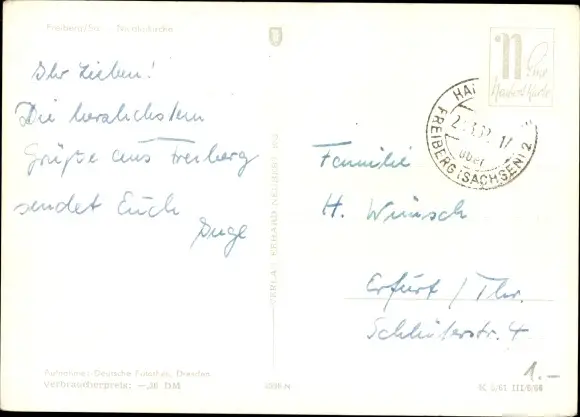 Freiberg/Sa.
Ihr Lieben!
Die herzlichsten
Grüße aus Freiberg
sendet Euch
Inge
Familie
H. Wünsch
Erfurt / Thr.
Schlüterstr. 4
über
FREIBERG (SACHSEN) 2
VERLAG ERHARD NEUBERT KG
Aufnahme: Deutsche Fotothek, Dresden
Verbraucherpreis: —,20 DM
1.–